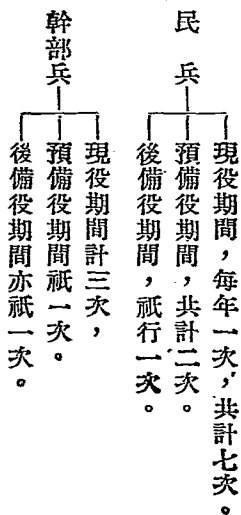 民兵
現役期間，每年一次，共計七次。
預備役期間，共計二次。
後備役期間，祇行一次。
幹部兵
現役期間計三次，
預備役期間祇一次。
後備役期間亦祇一次。